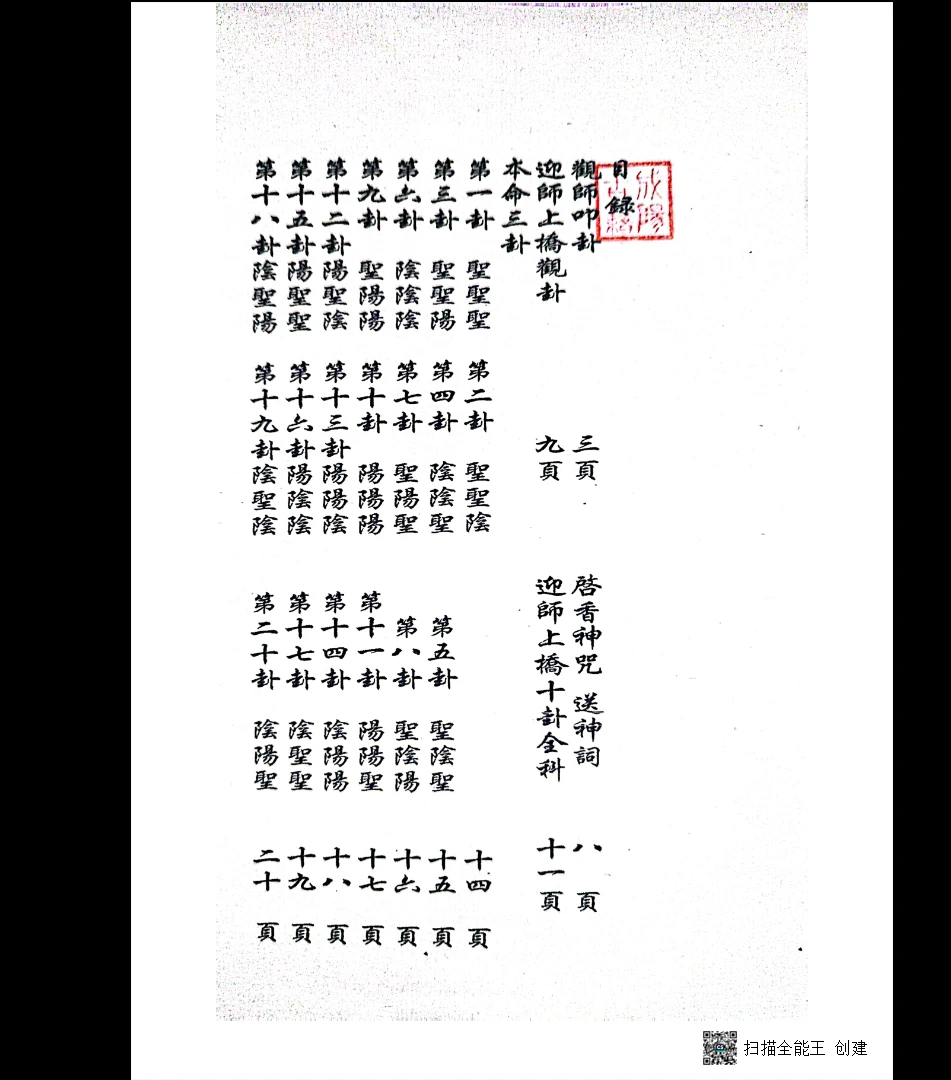 目錄
觀師叩卦 三頁 啓香神咒 送神詞 八頁
迎師上橋觀卦 九頁 迎師上橋十卦全科 十一頁
本命三卦
第一卦 聖聖聖 第二卦 聖聖陰 十四頁
第三卦 聖聖陽 第四卦 陰陰聖 第五卦 聖陰聖 十五頁
第六卦 陰陰陰 第七卦 聖陽聖 第八卦 聖陰陽 十六頁
第九卦 聖陽陽 第十卦 陽陽陽 第十一卦 陽陽聖 十七頁
第十二卦 陽聖陰 第十三卦 陽陽陰 第十四卦 陰陽陽 十八頁
第十五卦 陽聖聖 第十六卦 陽陰陰 第十七卦 陰聖聖 十九頁
第十八卦 陰聖陽 第十九卦 陰聖陰 第二十卦 陰陽聖 二十頁
扫描全能王 创建